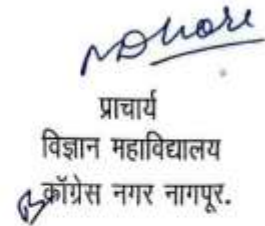 प्राचार्य
विज्ञान महाविद्यालय
कॉग्रेस नगर नागपूर.